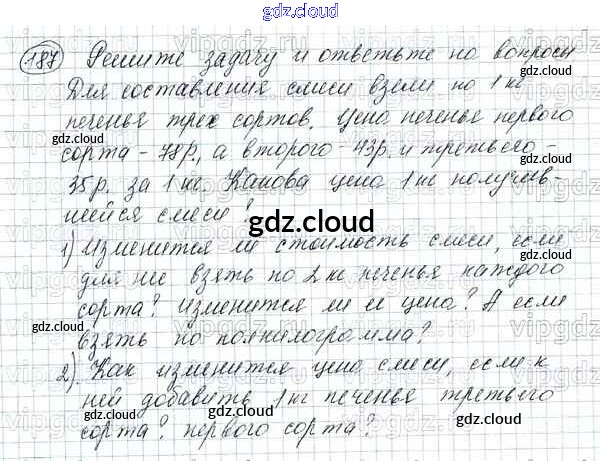 gdz.cloud
187 Решите задачу и ответьте на вопросы
Для составления смеси взяли по 1 кг
печенья трех сортов. Цена печенья первого
сорта - 78р., а второго - 43р. и третьего -
35р. за 1 кг. Какова цена 1 кг получив-
шейся смеси?
1) Изменится ли стоимость смеси, если
для нее взять по 2 кг печенья каждого
сорта? Изменится ли её цена? А если
взять по полкилограмма?
2) Как изменится цена смеси, если к
ней добавить 1 кг печенья третьего
сорта? первого сорта?